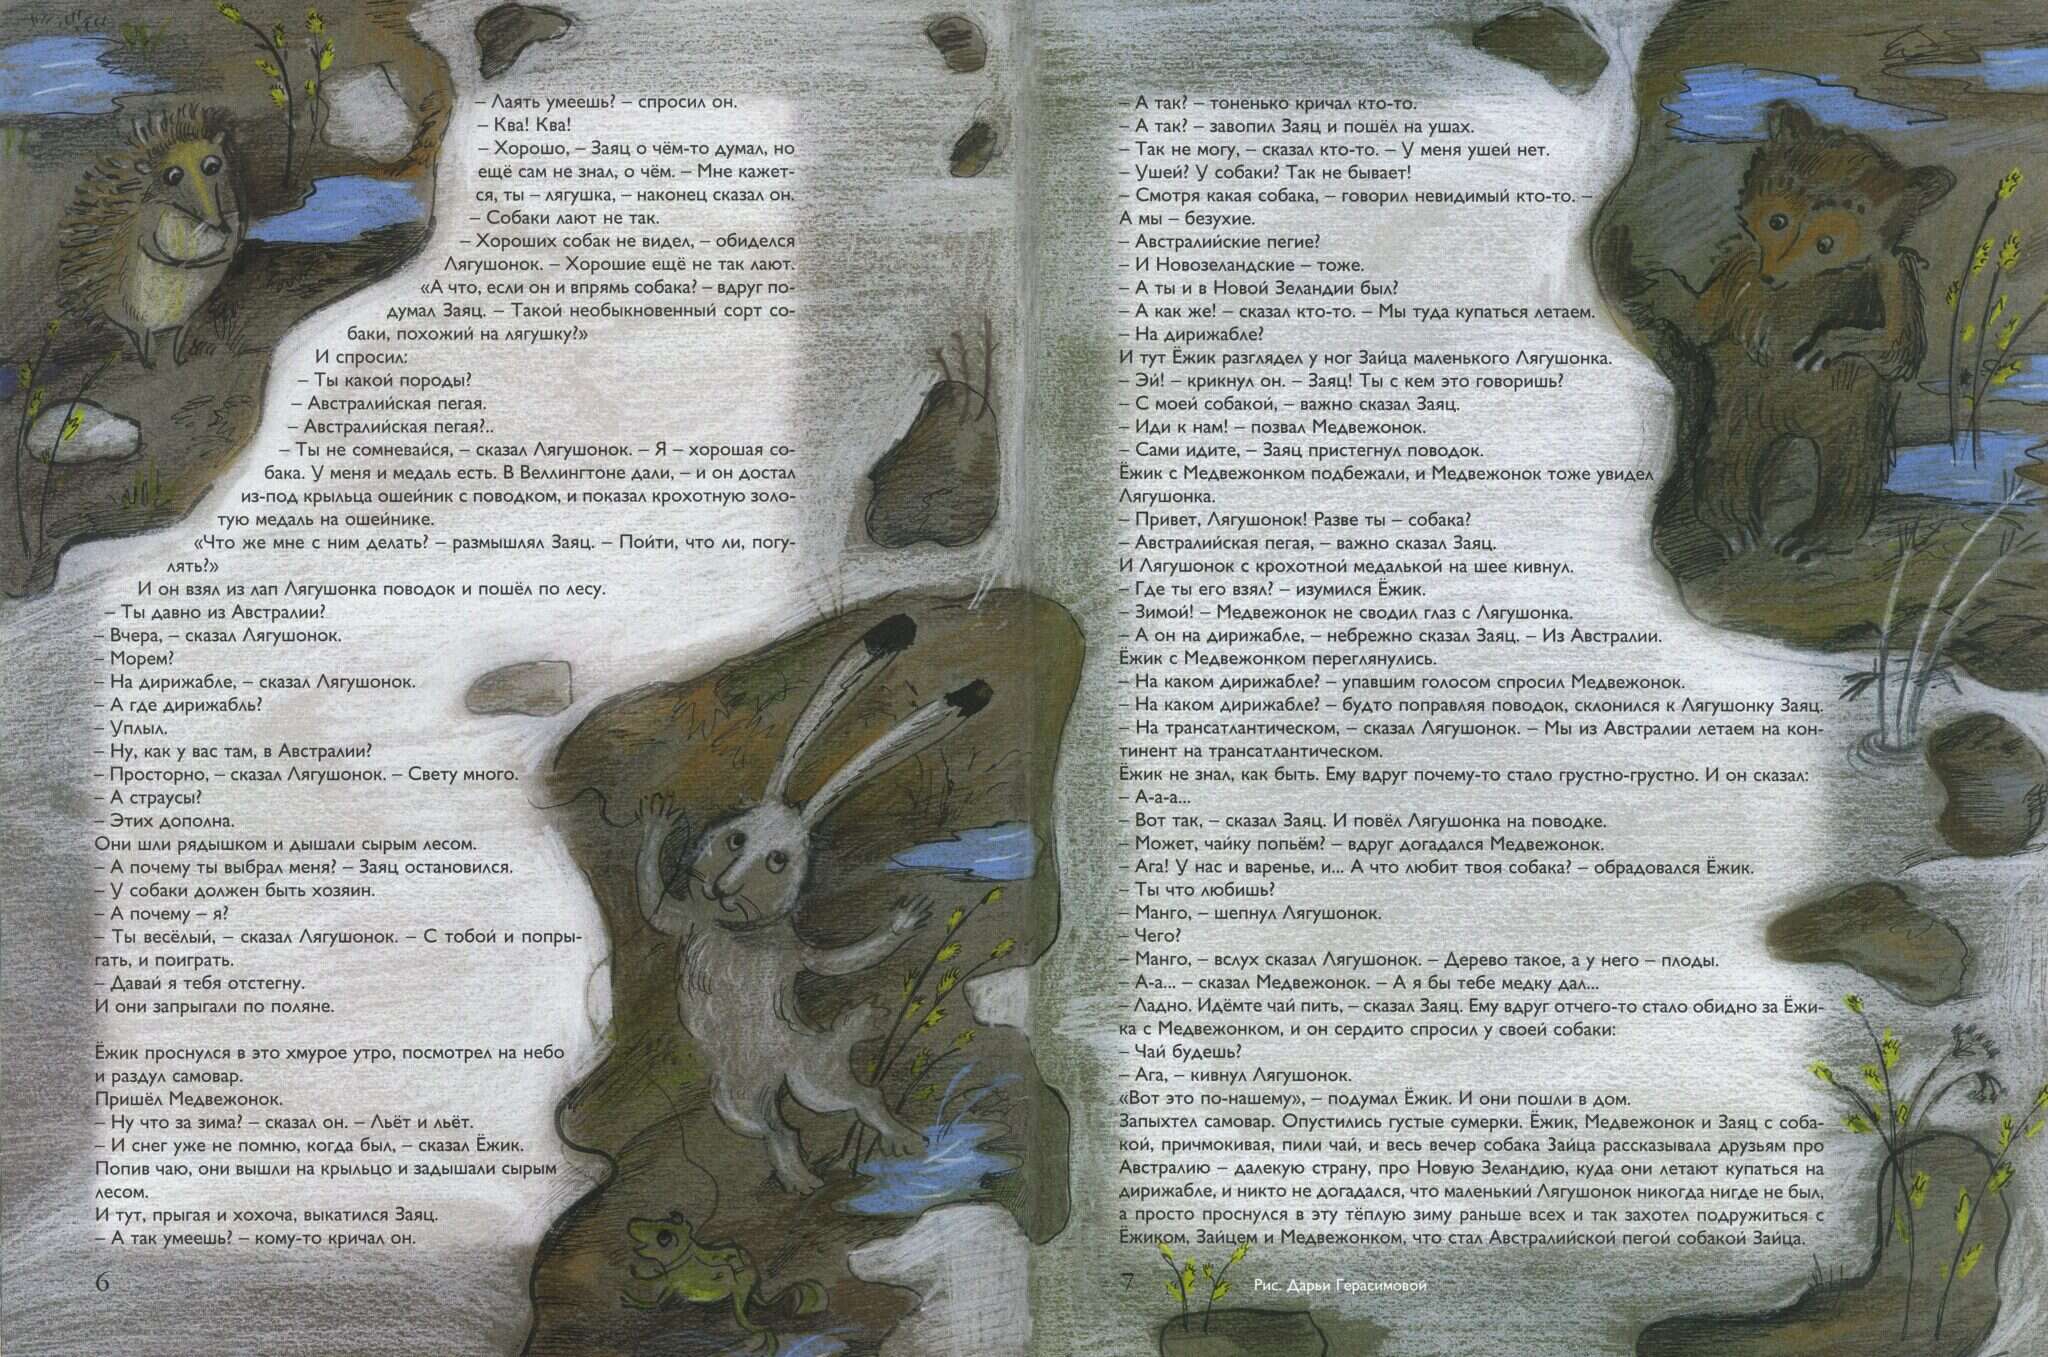 – Лаять умеешь? – спросил он.
– Ква! Ква!
– Хорошо, – Заяц о чём-то думал, но
ещё сам не знал, о чём. – Мне кажет-
ся, ты – лягушка, – наконец сказал он.
– Собаки лают не так.
– Хороших собак не видел, – обиделся
Лягушонок. – Хорошие ещё не так лают.
«А что, если он и впрямь собака? – вдруг по-
думал Заяц. – Такой необыкновенный сорт со-
баки, похожий на лягушку?»
И спросил:
– Ты какой породы?
– Австралийская пегая.
– Австралийская пегая?..
– Ты не сомневайся, – сказал Лягушонок. – Я – хорошая со-
бака. У меня и медаль есть. В Веллингтоне дали, – и он достал
из-под крыльца ошейник с поводком, и показал крохотную золо-
тую медаль на ошейнике.
«Что же мне с ним делать? – размышлял Заяц. – Пойти, что ли, погу-
лять?»
И он взял из лап Лягушонка поводок и пошёл по лесу.
– Ты давно из Австралии?
– Вчера, – сказал Лягушонок.
– Морем?
– На дирижабле, – сказал Лягушонок.
– А где дирижабль?
– Уплыл.
– Ну, как у вас там, в Австралии?
– Просторно, – сказал Лягушонок. – Свету много.
– А страусы?
– Этих дополна.
Они шли рядышком и дышали сырым лесом.
– А почему ты выбрал меня? – Заяц остановился.
– У собаки должен быть хозяин.
– А почему – я?
– Ты весёлый, – сказал Лягушонок. – С тобой и попры-
гать, и поиграть.
– Давай я тебя отстегну.
И они запрыгали по поляне.
Ёжик проснулся в это хмурое утро, посмотрел на небо
и раздул самовар.
Пришёл Медвежонок.
– Ну что за зима? – сказал он. – Льёт и льёт.
– И снег уже не помню, когда был, – сказал Ёжик.
Попив чаю, они вышли на крыльцо и задышали сырым
лесом.
И тут, прыгая и хохоча, выкатился Заяц.
– А так умеешь? – кому-то кричал он.
6
– А так? – тоненько кричал кто-то.
– А так? – завопил Заяц и пошёл на ушах.
– Так не могу, – сказал кто-то. – У меня ушей нет.
– Ушей? У собаки? Так не бывает!
– Смотря какая собака, – говорил невидимый кто-то. –
А мы – безухие.
– Австралийские пегие?
– И Новозеландские – тоже.
– А ты и в Новой Зеландии был?
– А как же! – сказал кто-то. – Мы туда купаться летаем.
– На дирижабле?
И тут Ёжик разглядел у ног Зайца маленького Лягушонка.
– Эй! – крикнул он. – Заяц! Ты с кем это говоришь?
– С моей собакой, – важно сказал Заяц.
– Иди к нам! – позвал Медвежонок.
– Сами идите, – Заяц пристегнул поводок.
Ёжик с Медвежонком подбежали, и Медвежонок тоже увидел
Лягушонка.
– Привет, Лягушонок! Разве ты – собака?
– Австралийская пегая, – важно сказал Заяц.
И Лягушонок с крохотной медалькой на шее кивнул.
– Где ты его взял? – изумился Ёжик.
– Зимой! – Медвежонок не сводил глаз с Лягушонка.
– А он на дирижабле, – небрежно сказал Заяц. – Из Австралии.
Ёжик с Медвежонком переглянулись.
– На каком дирижабле? – упавшим голосом спросил Медвежонок.
– На каком дирижабле? – будто поправляя поводок, склонился к Лягушонку Заяц.
– На трансатлантическом, – сказал Лягушонок. – Мы из Австралии летаем на кон-
тинент на трансатлантическом.
Ёжик не знал, как быть. Ему вдруг почему-то стало грустно-грустно. И он сказал:
– А-а-а...
– Вот так, – сказал Заяц. И повёл Лягушонка на поводке.
– Может, чайку попьём? – вдруг догадался Медвежонок.
– Ага! У нас и варенье, и... А что любит твоя собака? – обрадовался Ёжик.
– Ты что любишь?
– Манго, – шепнул Лягушонок.
– Чего?
– Манго, – вслух сказал Лягушонок. – Дерево такое, а у него – плоды.
– А-а... – сказал Медвежонок. – А я бы тебе медку дал...
– Ладно. Идёмте чай пить, – сказал Заяц. Ему вдруг отчего-то стало обидно за Ёжи-
ка с Медвежонком, и он сердито спросил у своей собаки:
– Чай будешь?
– Ага, – кивнул Лягушонок.
«Вот это по-нашему», – подумал Ёжик. И они пошли в дом.
Запыхтел самовар. Опустились густые сумерки. Ёжик, Медвежонок и Заяц с соба-
кой, причмокивая, пили чай, и весь вечер собака Зайца рассказывала друзьям про
Австралию – далекую страну, про Новую Зеландию, куда они летают купаться на
дирижабле, и никто не догадался, что маленький Лягушонок никогда нигде не был,
а просто проснулся в эту тёплую зиму раньше всех и так захотел подружиться с
Ёжиком, Зайцем и Медвежонком, что стал Австралийской пегой собакой Зайца.
7
Рис. Дарьи Герасимовой